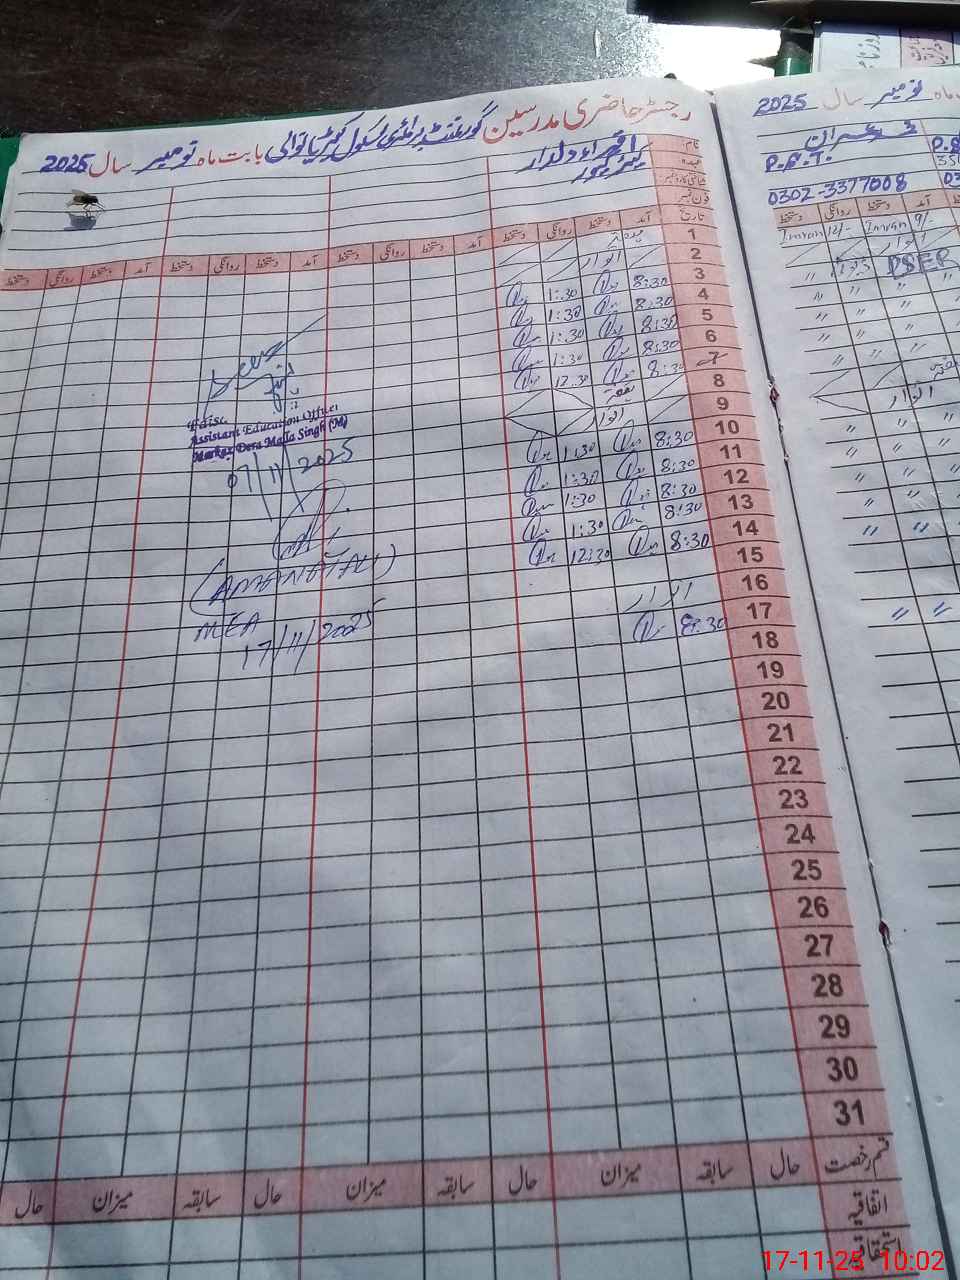 رجسٹر حاضری مدرسین گورنمنٹ پرائمری سکول کوٹریانوالی بابت ماہ نومبر سال 2025
نام
عہدہ
شناختی کارڈ نمبر
فون نمبر
تاریخ
آمد دستخط روانگی دستخط آمد دستخط روانگی دستخط آمد دستخط روانگی دستخط
1
2 اتوار
3 8:30 1:30
4 8:30 1:30
5 8:30 1:30
6 8:30 1:30
7 8:30 12:30
8
9 اتوار
10 8:30 1:30
11 8:30 1:30
12 8:30 1:30
13 8:30 1:30
14 8:30 12:30
15
16 اتوار
17 8:30
18
19
20
21
22
23
24
25
26
27
28
29
30
31
Assistant Education Officer
Markaz Dera Malla Singh (M)
07/11/2025
MEA
17/11/2025
قسم رخصت حال سابقہ میزان حال سابقہ میزان حال سابقہ میزان حال
اتفاقیہ
استحقاقیہ
ماہ نومبر سال 2025
عمران
P.S.T.
0302-3377008
آمد دستخط روانگی دستخط
9/- Imran 12/- Imran
اتوار
PSER
اتوار
17-11-25 10:02